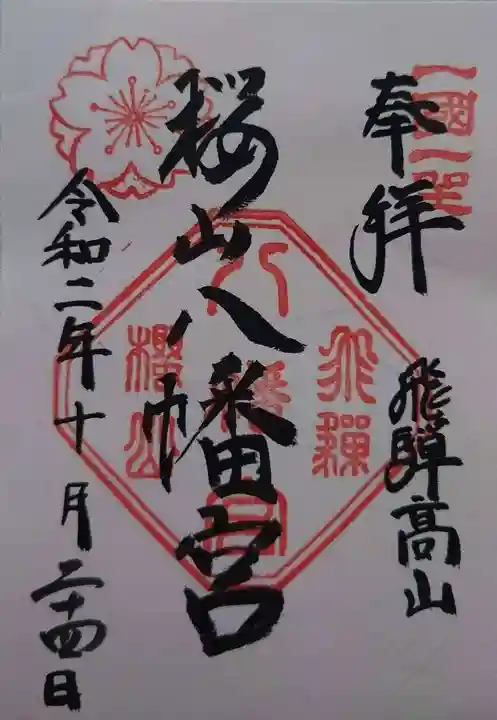 奉拝
飛騨高山
桜山八幡宮
令和二年十月二十四日
一國一
飛騨
八幡宮
櫻山